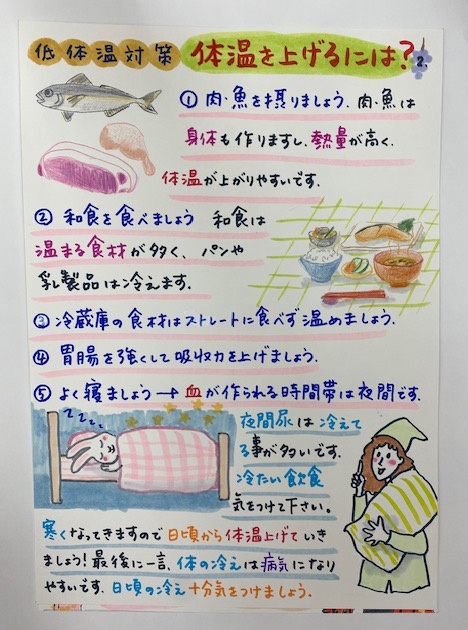 低体温対策 体温を上げるには? 2.
① 肉・魚を摂りましょう. 肉・魚は
身体も作りますし、熱量が高く、
体温が上がりやすいです.
② 和食を食べましょう 和食は
温まる食材が多く、パンや
乳製品は冷えます.
③ 冷蔵庫の食材はストレートに食べず温めましょう.
④ 胃腸を強くして吸収力を上げましょう.
⑤ よく寝ましょう→血が作られる時間帯は夜間です.
zzzz
夜間尿は冷えて
る事が多いです.
冷たい飲食
気をつけて下さい。
寒くなってきますので日頃から体温上げていき
ましょう!最後に一言、体の冷えは病気になり
やすいです.日頃の冷え十分気をつけましょう.